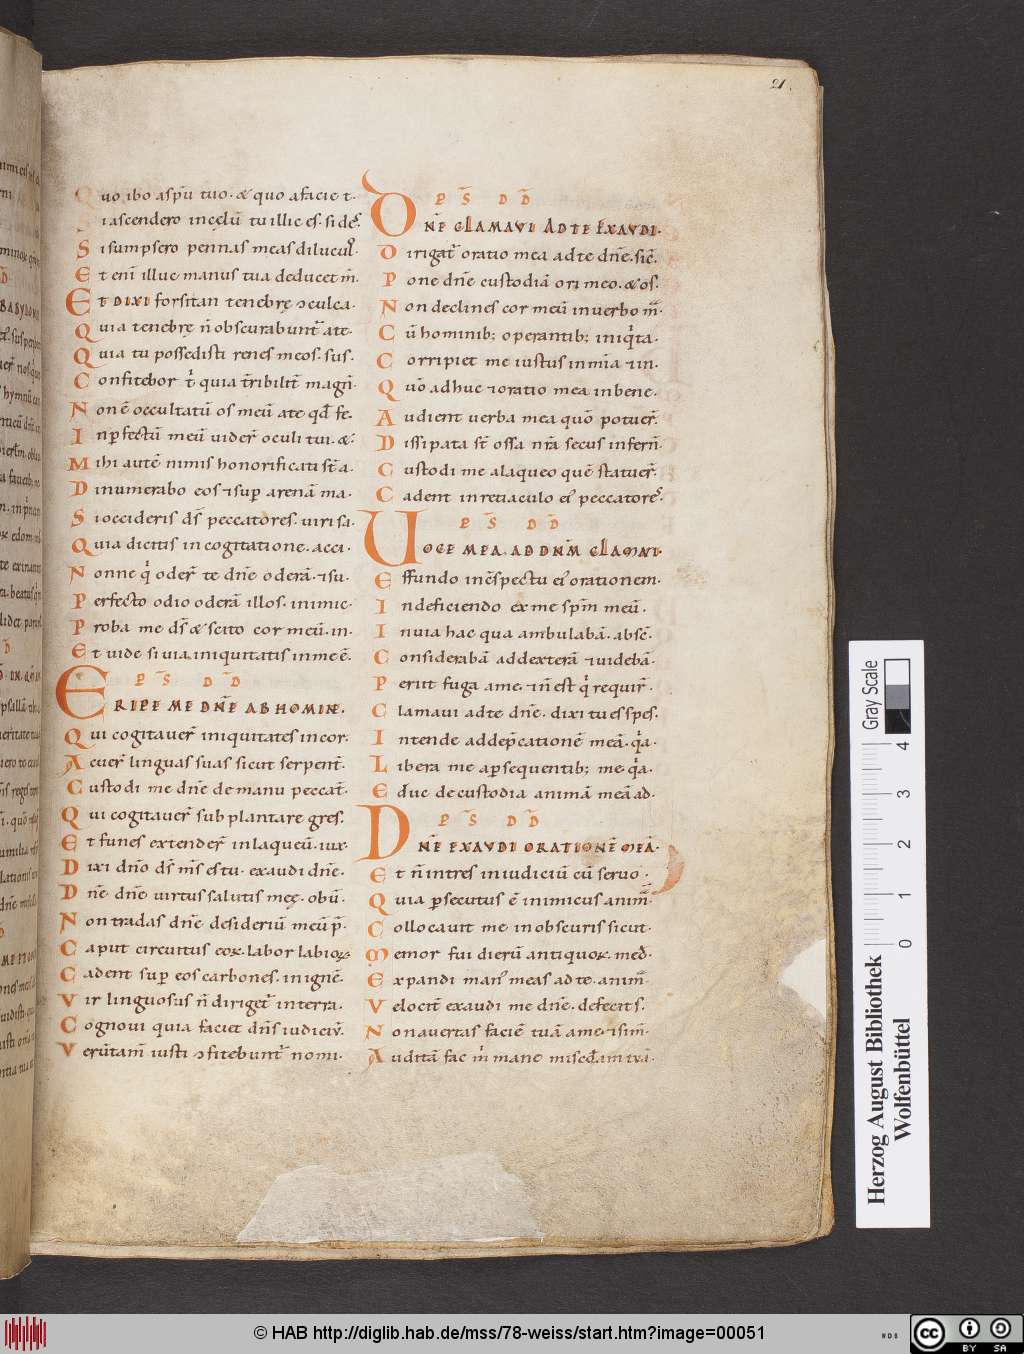 21.
Quo ibo a spu tuo. & quo a facie t.
Si ascendero in cęlū tu illic es. si des.
Si sumpsero pennas meas dilucul.
Et eni illuc manus tua deducet m̄.
ET DIXI forsitan tenebrę ɔculca.
Quia tenebrę n̄ obscurabunt ate.
Quia tu possedisti renes meos. sus.
Confitebor t quia tribilit magn.
Non ē occultatū os meū ate qd fe.
Inpfectū meū vider oculi tui. &
Mihi autē nimis honorificati st a.
Dinumerabo eos ⁊ sup arenā ma.
Si occideris ds peccatores. uiri sa.
Quia dicitis in cogitatione. acci.
Nonne q oder te dne oderā. ⁊ su.
Perfecto odio oderā illos. inimic.
Proba me ds & scito cor meū. in.
Et uide si uia iniquitatis in me ē.
PS DD
ERIPE ME DNE AB HOMINE.
Qui cogitauer iniquitates in cor.
Acuer linguas suas sicut serpent.
Custodi me dne de manu peccat.
Qui cogitauer subplantare gres.
Et funes extender in laqueū. iux.
Dixi dno ds ms es tu. exaudi dne.
Dne dne uirtus salutis meę. obū.
Non tradas dne desideriū meū p.
Caput circuitus eoꝝ. labor labioꝝ.
Cadent sup eos carbones. in ignē.
Vir linguosus n̄ diriget in terra.
Cognoui quia faciet dns iudiciū.
Verūtam iusti ɔfitebunt nomi.
PS DD
DNE CLAMAVI AD TE EXAVDI.
Dirigat oratio mea ad te dne. sic.
Pone dne custodiā ori meo. & os.
Non declines cor meū in uerbo m.
Cū hominib; operantib; iniqta.
Corripiet me iustus in mia ⁊ in.
Quō adhuc ⁊ oratio mea in bene.
Audient uerba mea quō potuer.
Dissipata st ossa nrā secus infern.
Custodi me a laqueo quē statuer.
Cadent in retiaculo ei peccatores.
PS DD
UOCE MEA AD DNM CLAMAVI.
Effundo in ɔspectu ei orationem.
In deficiendo ex me spm meū.
In uia hac qua ambulabā. absc.
Considerabā ad dexterā ⁊ uidebā.
Perut fuga a me. ⁊ n̄ est q requir.
Clamaui ad te dne. dixi tu es spes.
Intende ad depcationē meā. qa.
Libera me a psequentib; me. qa.
Educ de custodia animā meā ad.
PS DD
DNE EXAVDI ORATIONĒ MEĀ.
Et n̄ intres in iudiciū cū seruo.
Quia psecutus ē inimicus anim.
Collocauit me in obscuris sicut.
Memor fui dierū antiquoꝝ. med.
Expandi man meas ad te. anim.
Velocit exaudi me dne. defecit s.
Non auertas faciē tuā a me. ⁊ sim.
Auditā fac m mane misedam tuā.
Herzog August Bibliothek
Wolfenbüttel
Gray Scale
0 1 2 3 4
© HAB http://diglib.hab.de/mss/78-weiss/start.htm?image=00051
cc BY SA